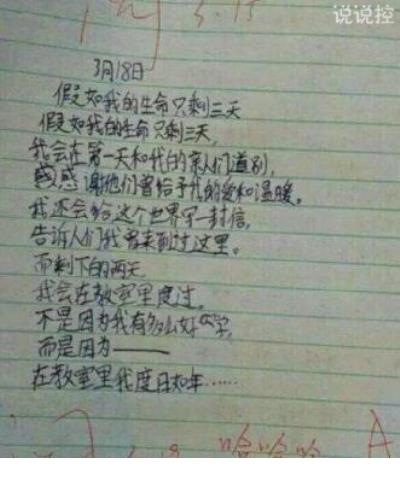 说说控
3月18日
假如我的生命只剩三天
假如我的生命只剩三天,
我会在第一天和我的亲人们道别,
感谢他们曾给予我的爱和温暖。
我还会给这个世界写一封信,
告诉人们我曾来到过这里。
而剩下的两天
我会在教室里度过,
不是因为我有多么好学,
而是因为——
在教室里我度日如年……
哈哈哈 A